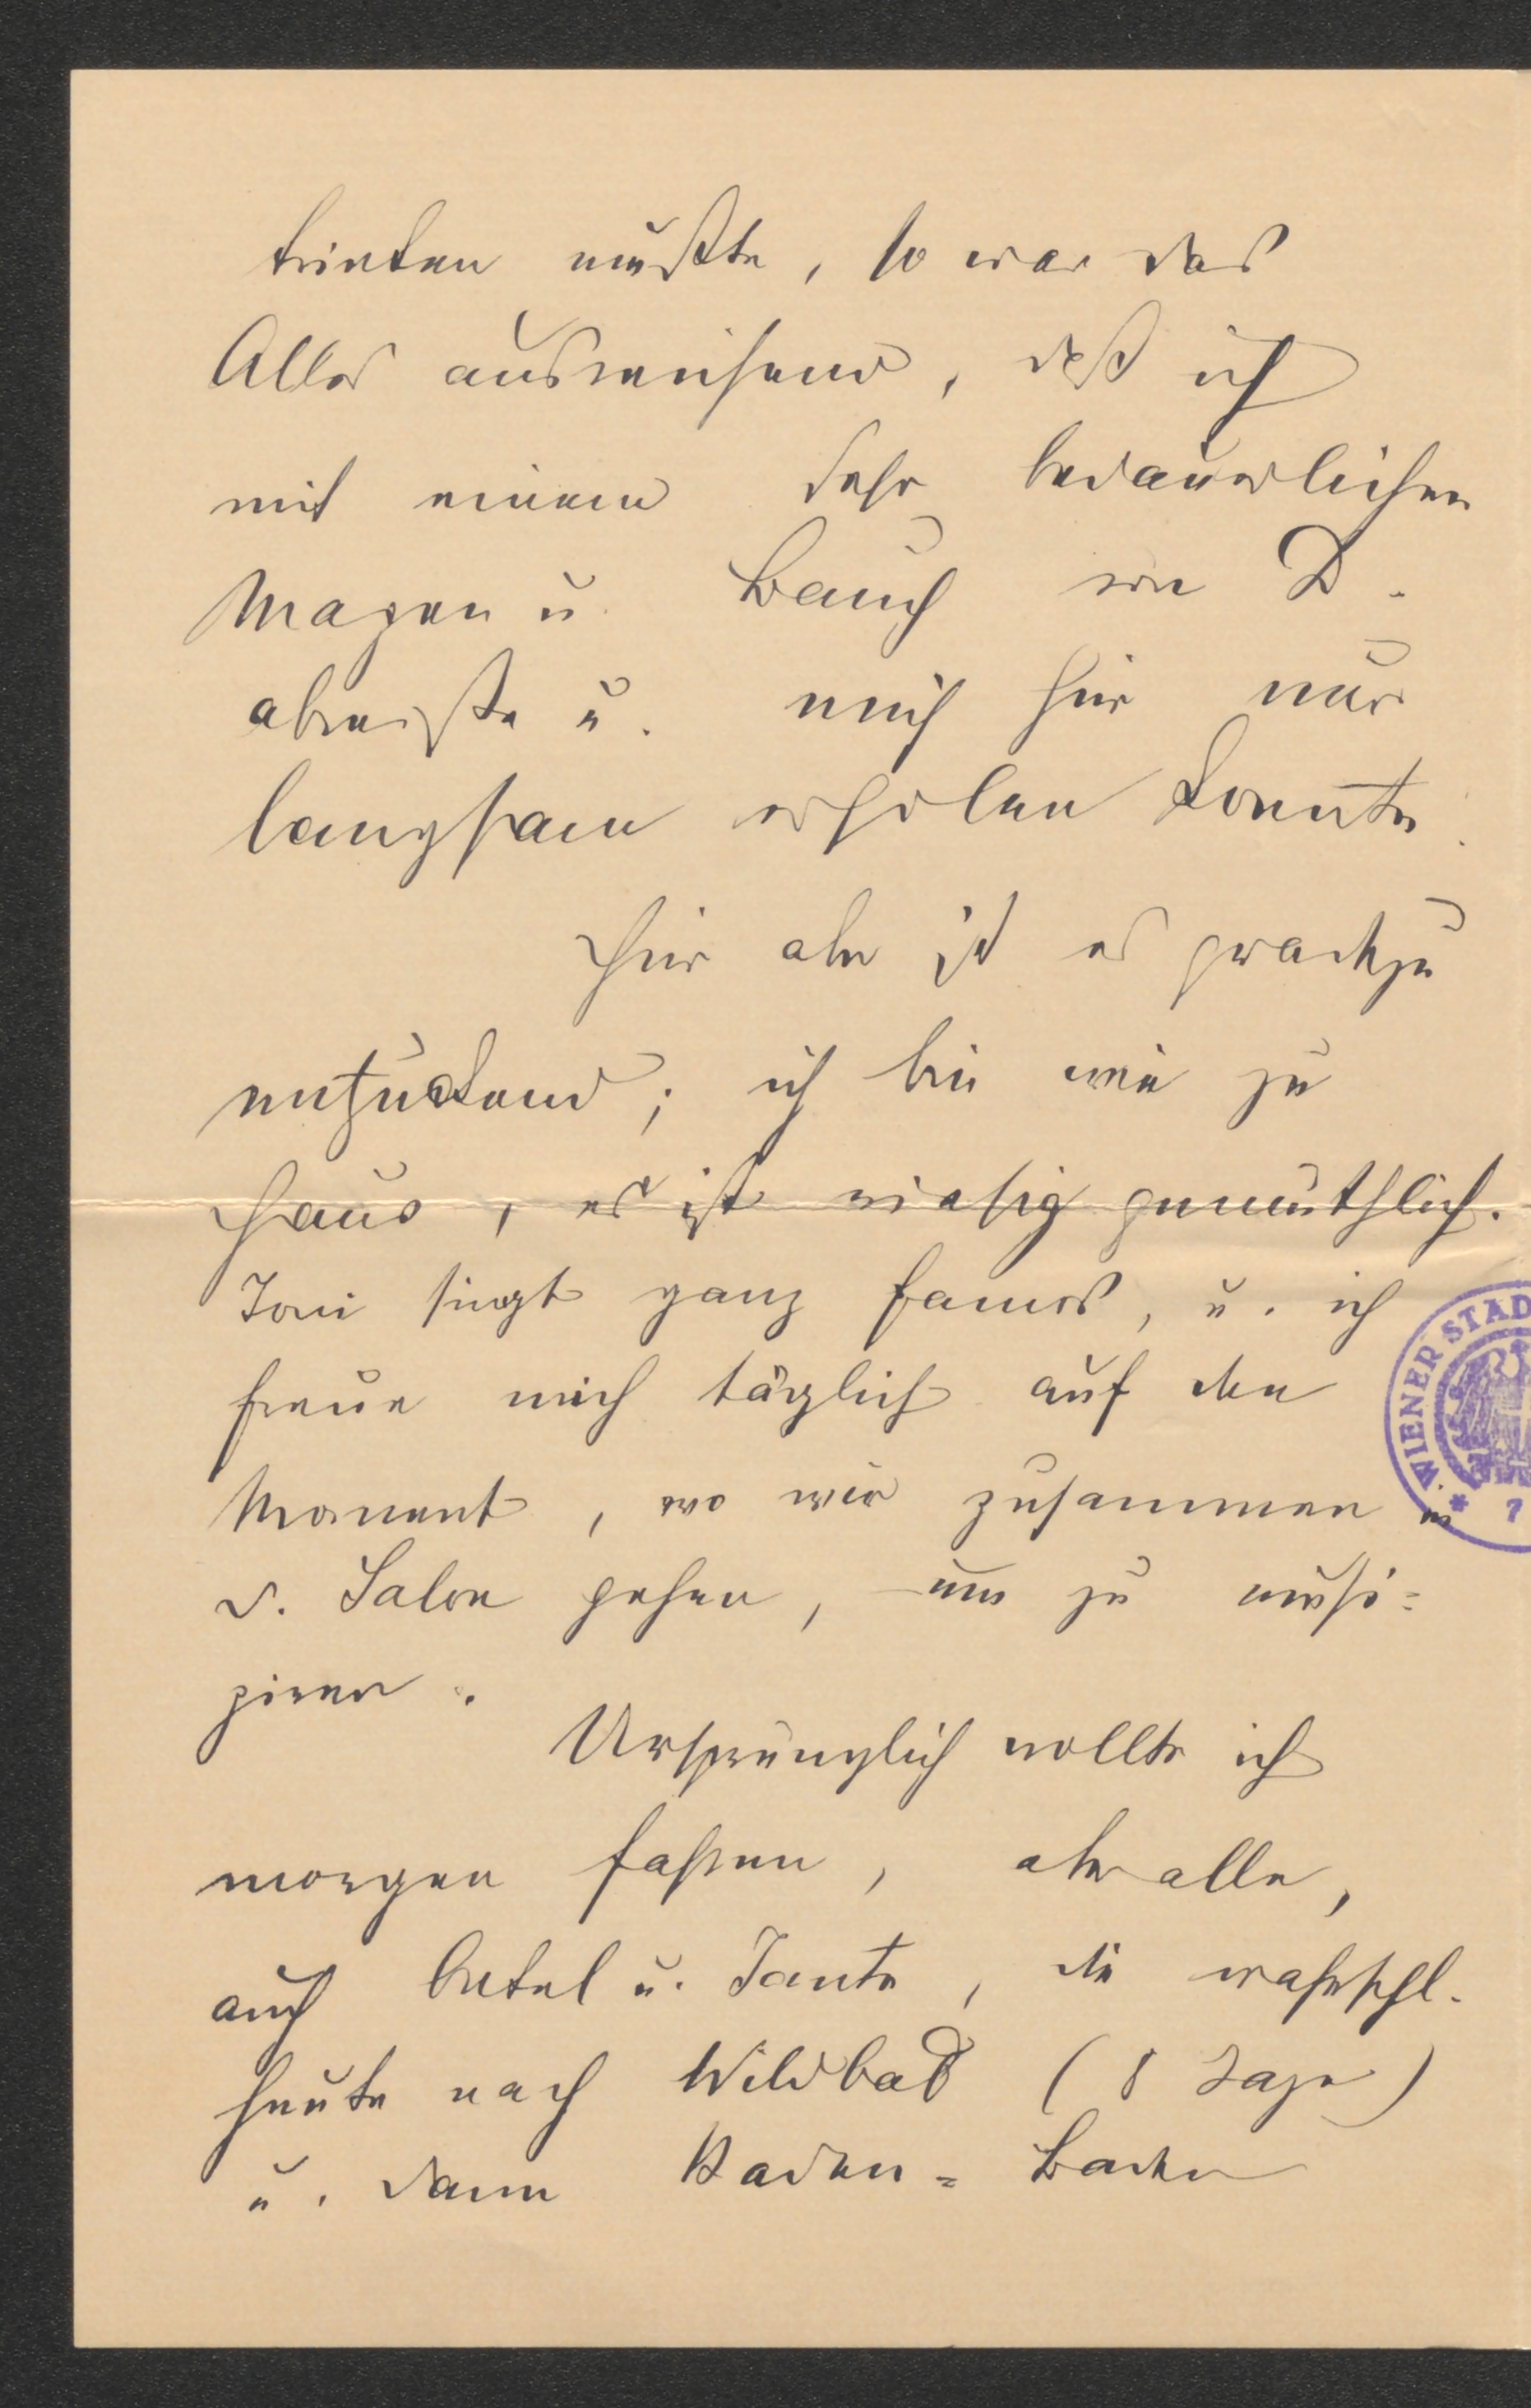 trinken mußte, so war das
Alles ausreichend, daß ich
mit einem sehr bedauerlichen
Magen u. Bauch von D.
abreiste u. mich hier nur
langsam erholen konnte.
Hier aber ist es geradezu
entzückend; ich bin wie zu
Haus, es ist riesig gemüthlich.
Toni singt ganz famos, u. ich
freue mich täglich auf den
Moment, wo wir zusammen in
d. Salon gehen, um zu musi=
ziren.
Ursprünglich wollte ich
morgen fahren, aber alle,
auch Onkel u. Tante, die wahrschl.
heute nach Wildbad (8 Tage)
u. dann Baden=Baden
WIENER STAD
* 7